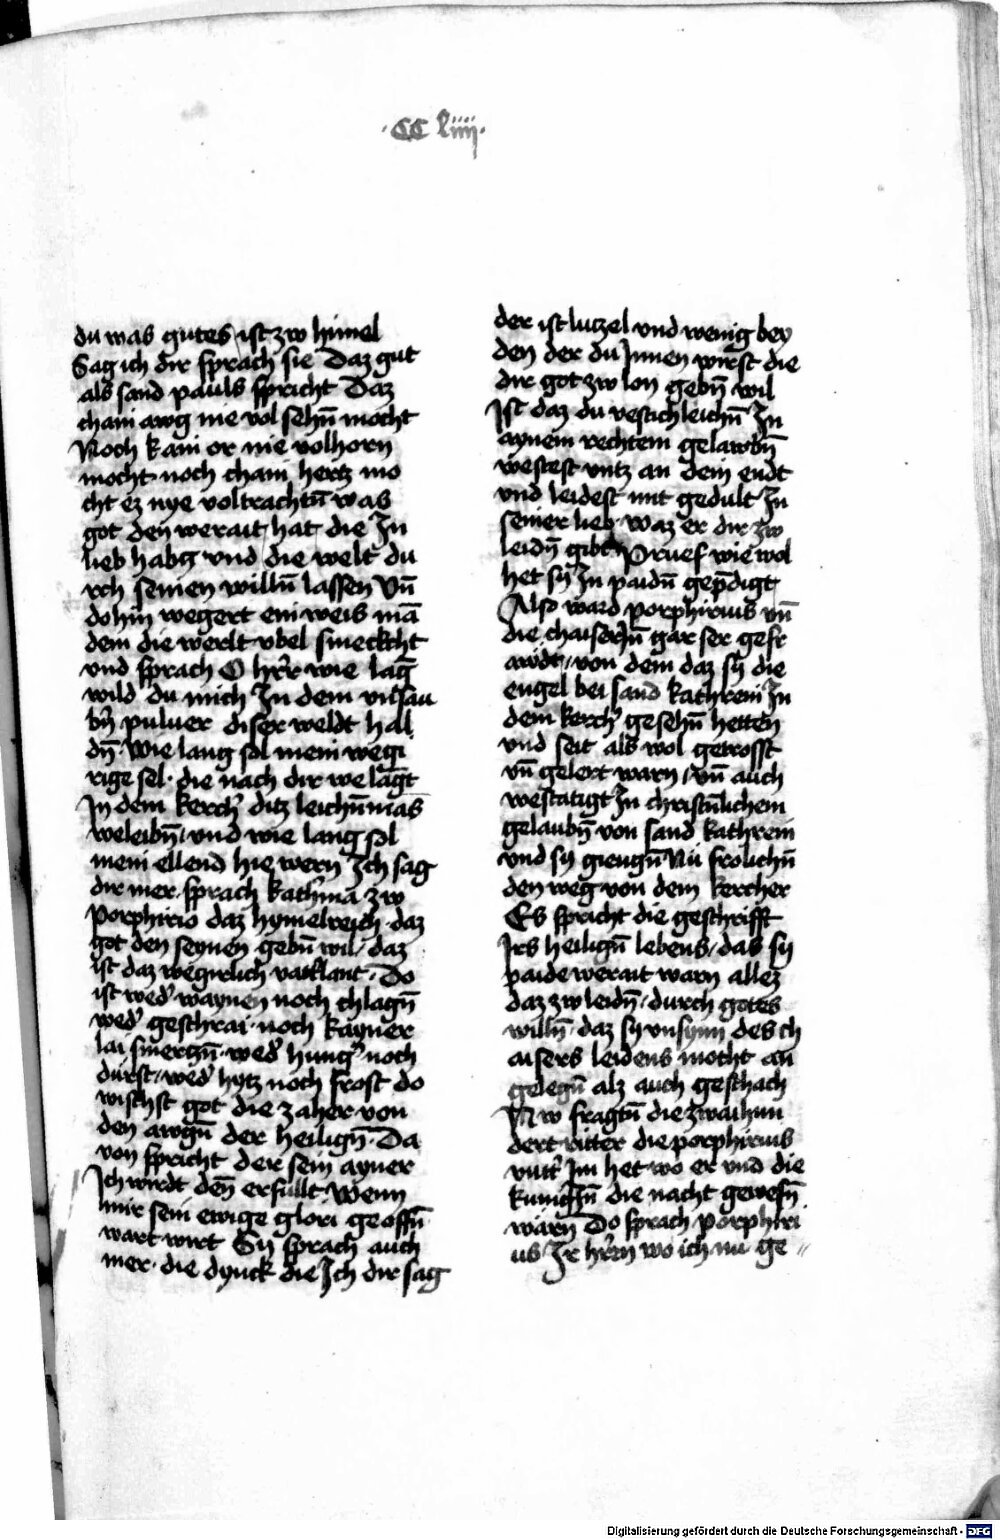 ·CC liiij·
du was gutes ist zw himel
Sag ich dir sprach sie Daz gut
als sand pauls spricht Daz
cham awg nie vol sehn̄ mocht
Noch kain or nie volhorn
mocht noch cham hertz mo
cht ez nye voltrachtn̄ was
got den werait hat die In
lieb habn̄ vnd die welt du
rch seinen willn̄ lassen Vn̄
dohin wegert ein weis mā
dem die werlt vbel smeckcht
vnd sprach O hrr wie lāg
wild du mich In dem
puluer diser weldt hal
dn̄ Wie lang sol mein wegi
rige sel · die nach dir we lāgt
In dem kercher ditz leichnmas
weleibn̄ vnd wie lang sol
mein ellend hie wern Ich sag
dir mer sprach kathrina zw
Porphirio daz hymelreich daz
got den seynen gebn̄ wil daz
ist daz wegirlich vatlant · Do
ist wed' waynen noch chlagn̄
wed' geschrai noch kayner
lai smerczn̄ · wed' hung' noch
durst wed' hytz noch frost do
wischst got die zaher von
den awgn̄ der heilign̄ · Da
von spricht der sein ayner
Ich wirdt den̄ erfullt wenn
mir sein ewige glori geoffn̄
wart wirt Sy sprach auch
mer · die dynck die Ich dir sag
der ist lutzel vnd wenig bey
den der du Innen wirst die
dir got zw lon gebn̄ wil
Ist daz du vestichleichn̄ In
aynem rechtem gelawbn̄
westest vntz an dein endt
vnd leidest mit gedult In
seiner lieb waz er dir zw
leidn̄ gibt Pruef wie wol
het sy In paidn̄ gepdigt
Also ward porphirius vn̄
die chaiserin̄ gar ser gefr
awdt von dem daz sy die
engel bei sand kathrein In
dem kercher gesehn̄ hetten
vnd seit als wol getrosst
vn̄ gelert warn vn̄ auch
westatigt In christnlichem
gelaubn̄ von sand kathrein
vnd sy giengn̄ Nu frolichn̄
den weg von dem kercher
Es spricht die geschrifft
Irs heilign̄ lebens das sy
paide werait warn allez
daz zw leidn̄ durch gotes
willn̄ daz sy vnsynn des ch
aisers leidens mocht an
gelegn̄ alz auch geschach
Nw fragtn̄ die zwaihun
dert ritter die porphirius
vntter Im het wo er vnd die
kunigin̄ die nacht gewesn̄
wärn Do sprach porphiri
us Ir hrrn wo ich nu ge //
Digitalisierung gefördert durch die Deutsche Forschungsgemeinschaft - DFG